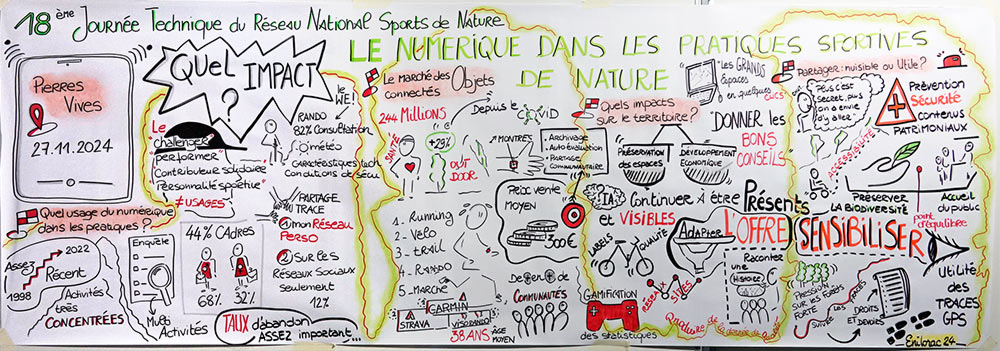 18ème Journée Technique du Réseau National Sports de Nature
LE NUMERIQUE DANS LES PRATIQUES SPORTIVES
DE NATURE
Pierres
Vives
27.11.2024
QUEL IMPACT
?
Le
challenger
performer
Contributeur solidaire
Personnalité sportive
≠ USAGES
le
WE!
RANDO
82% Consultation
météo
Caractéristiques tech
Conditions de sécu
PARTAGE
TRACE
1 mon Réseau
Perso
2 Sur les
Réseaux Sociaux
seulement
12%
Quel usage du numérique
dans les pratiques ?
2022
Assez
Récent
1998
Activités
très
CONCENTRÉES
Enquête
Multi
Activités
44% CAdres
68% 32%
TAUX d'abandon
ASSEZ important...
Le marché des Objets
connectés
244 Millions
Depuis le COVID
SANTÉ
+29%
OUT
DOOR
MONTRES
• Archivage
• Auto évaluation
• Partage
Communautaire
Prix vente
MOYEN
300€
1 - Running
2 - Vélo
3 - trail
4 - Rando
5 - Marche
GARMIN
STRAVA
VISORANDO
38 ANS
ÂGE
MOYEN
De en de
COMMUNAUTÉS
Quels impacts
sur le territoire ?
PRÉSERVATION
des espaces
DÉVELOPPEMENT
Economique
Les GRANDS
Espaces
en quelques
CLICS
DONNER les
BONS
CONSEILS
IA
Continuer à être Présents
et VISIBLES
LABELS
QUALITÉ
Adapter L'OFFRE
SENSIBILISER
GAMIFICATION
des statistiques
RÉSEAUX
SITES
Racontez
une
Histoire
Partager : nuisible ou Utile ?
Plus c'est
Secret, plus
on a envie
d'y aller !
Prévention
Sécurité
contenus
PATRIMONIAUX
ACCESSIBILITÉ
PRÉSERVER
LA BIODIVERSITÉ
Accueil
du public
point
d'équilibre
PRESSION
SUR LES FORÊTS
FORTE
SUIVRE les TRACES
DROITS
ET DEVOIRS
Utilité
des
TRACES
GPS
Enibrac 24